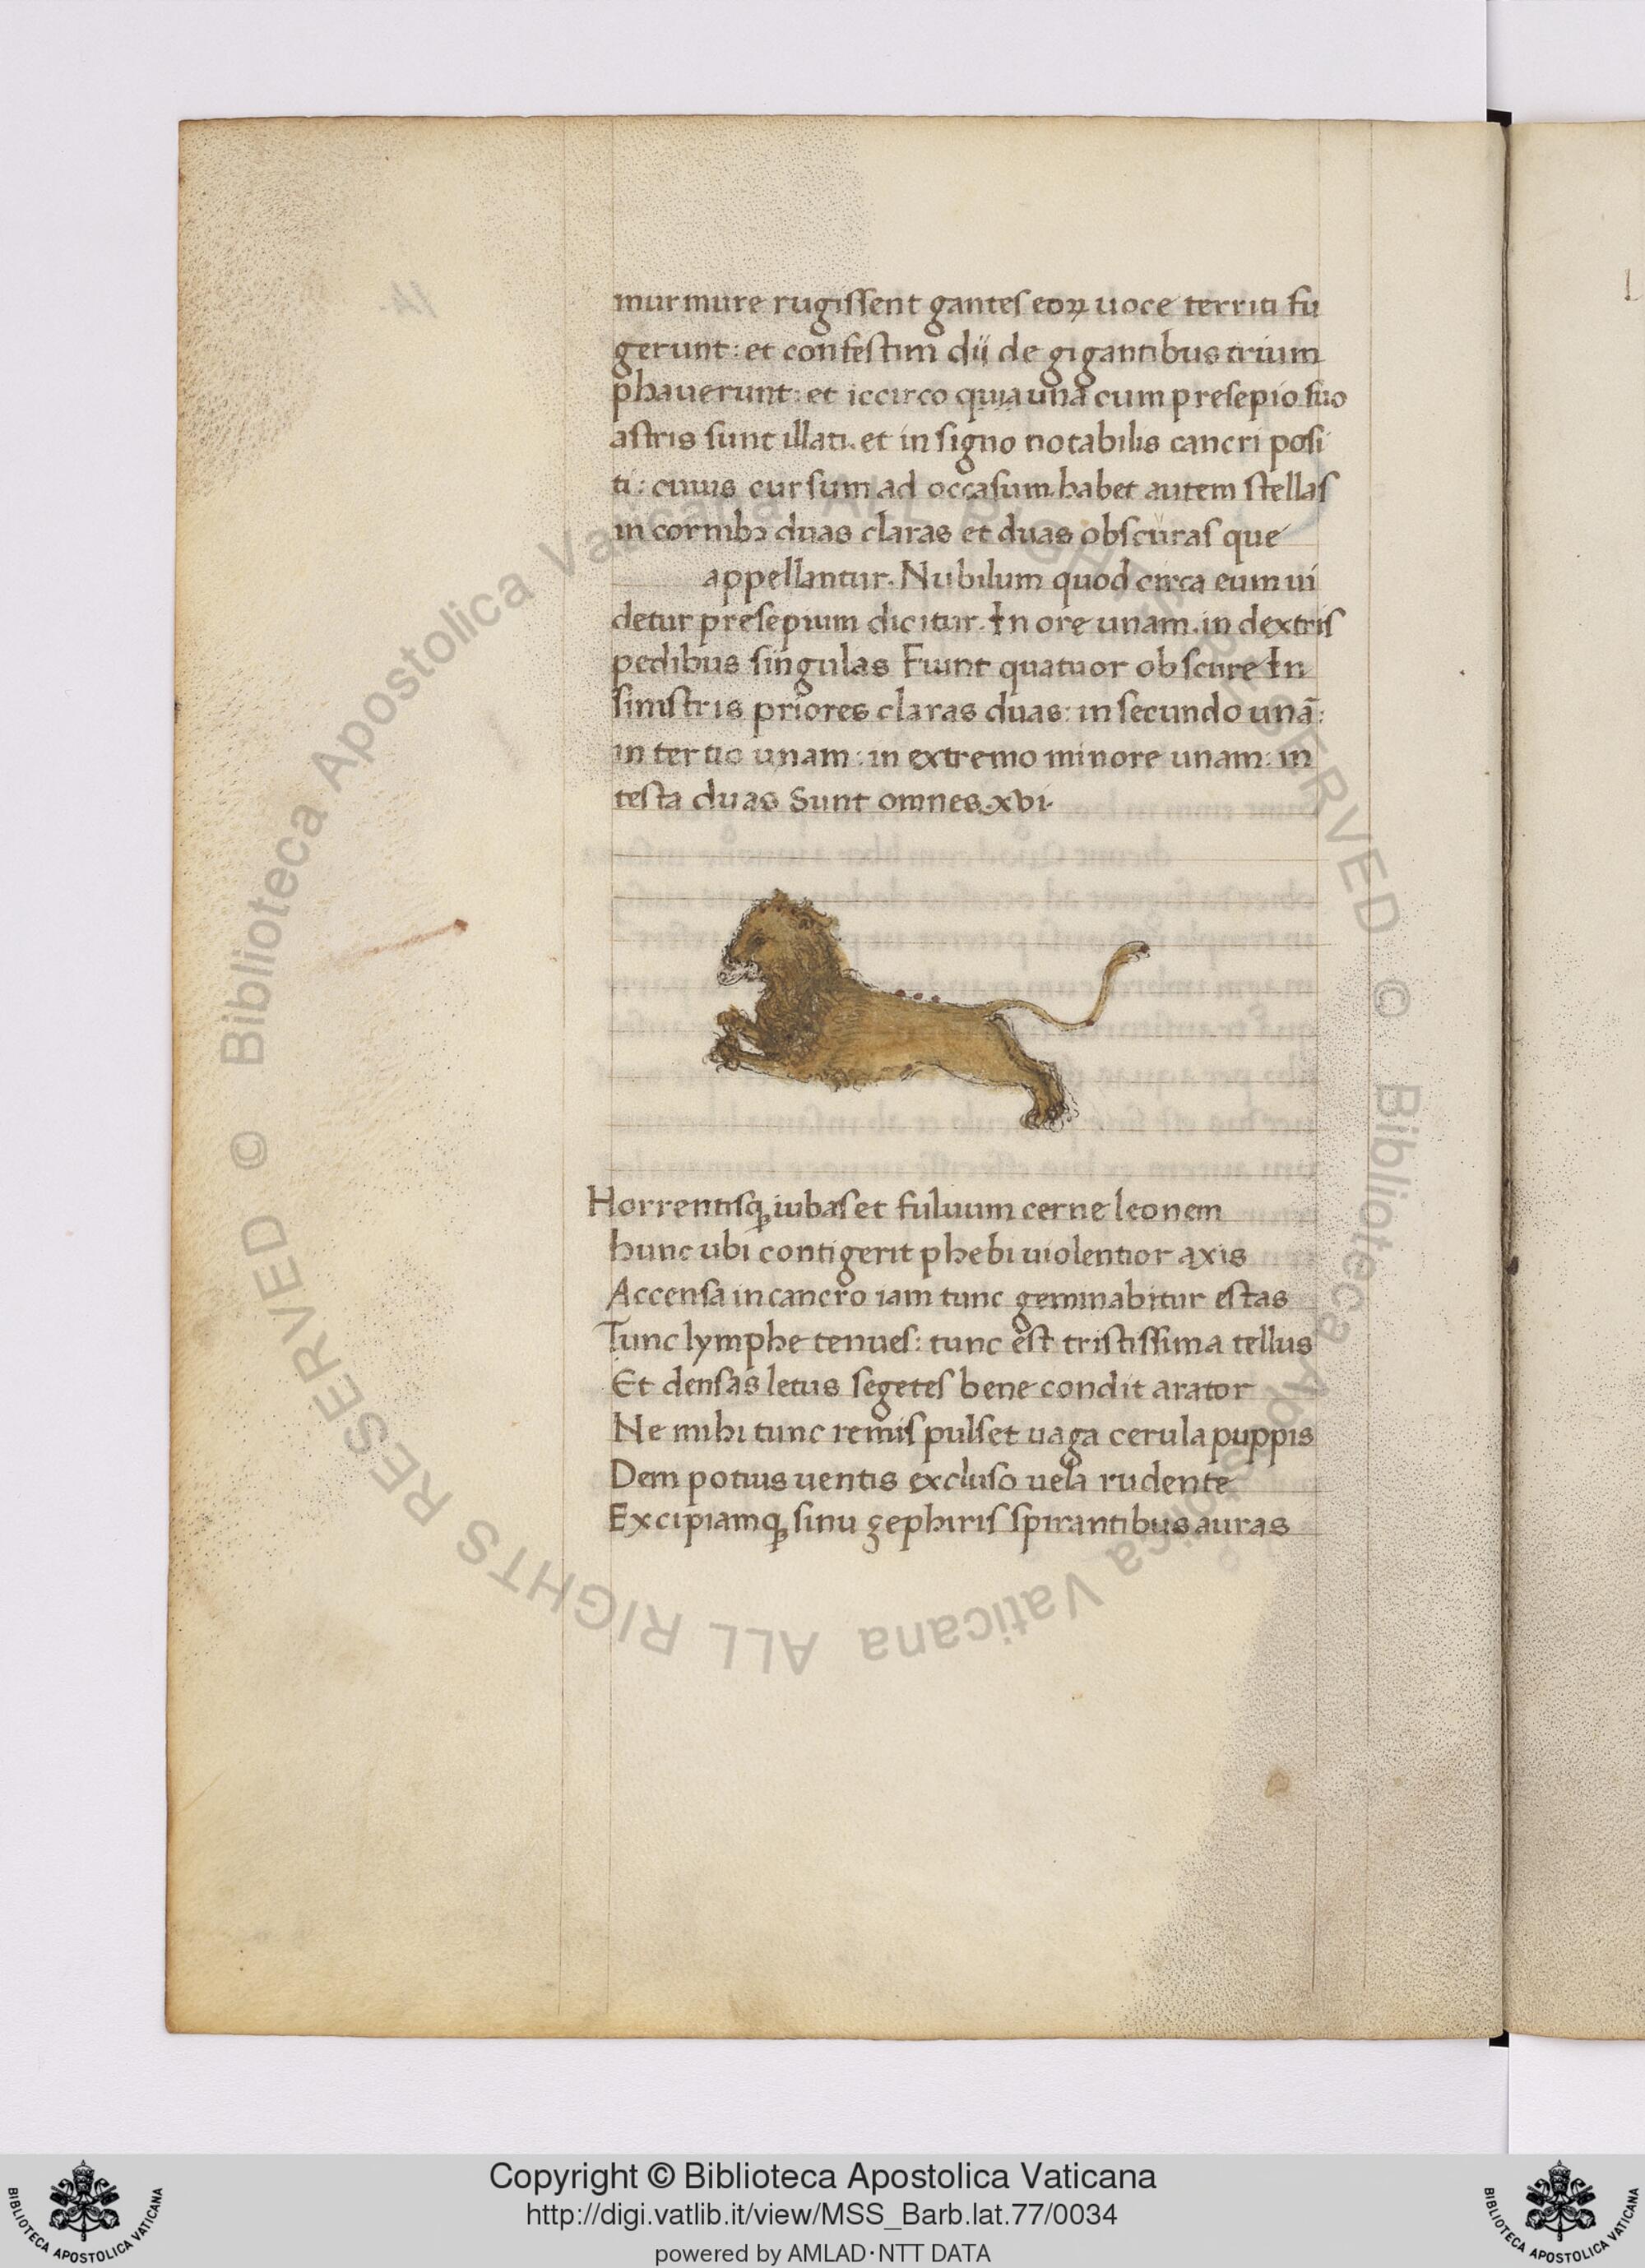 murmure rugissent gantes eoꝝ uoce territi fu
gerunt: et confestim dii de gigantibus trium
phauerunt: et iccirco quia una cum presepio suo
astris sunt illati. et in signo notabilis cancri posi
ti: cuius cursum ad occasum habet autem stellas
in cornibꝫ duas claras et duas obscuras que
appellantur. Nubilum quod circa eum ui
detur presepium dicitur. In ore unam. in dextris
pedibus singulas Fiunt quatuor obscure In
sinistris priores claras duas: in secundo unā:
in tertio unam: in extremo minore unam: in
testa duas Sunt omnes. xvi.
Horrentisqꝫ iubas et fuluum cerne leonem
hunc ubi contigerit phebi uiolentior axis
Accensa in cancro iam tunc geminabitur estas
Tunc lymphe tenues: tunc est tristissima tellus
Et densas letus segetes bene condit arator
Ne mihi tunc remis pulset uaga cerula puppis
Dem potius uentis excluso uela rudente
Excipiamqꝫ sinu zephiris spirantibus auras
© Biblioteca Apostolica Vaticana ALL RIGHTS RESERVED © Biblioteca Apostolica Vaticana ALL RIGHTS RESERVED
BIBLIOTECA APOSTOLICA VATICANA
Copyright © Biblioteca Apostolica Vaticana
http://digi.vatlib.it/view/MSS_Barb.lat.77/0034
powered by AMLAD·NTT DATA
BIBLIOTECA APOSTOLICA VATICANA